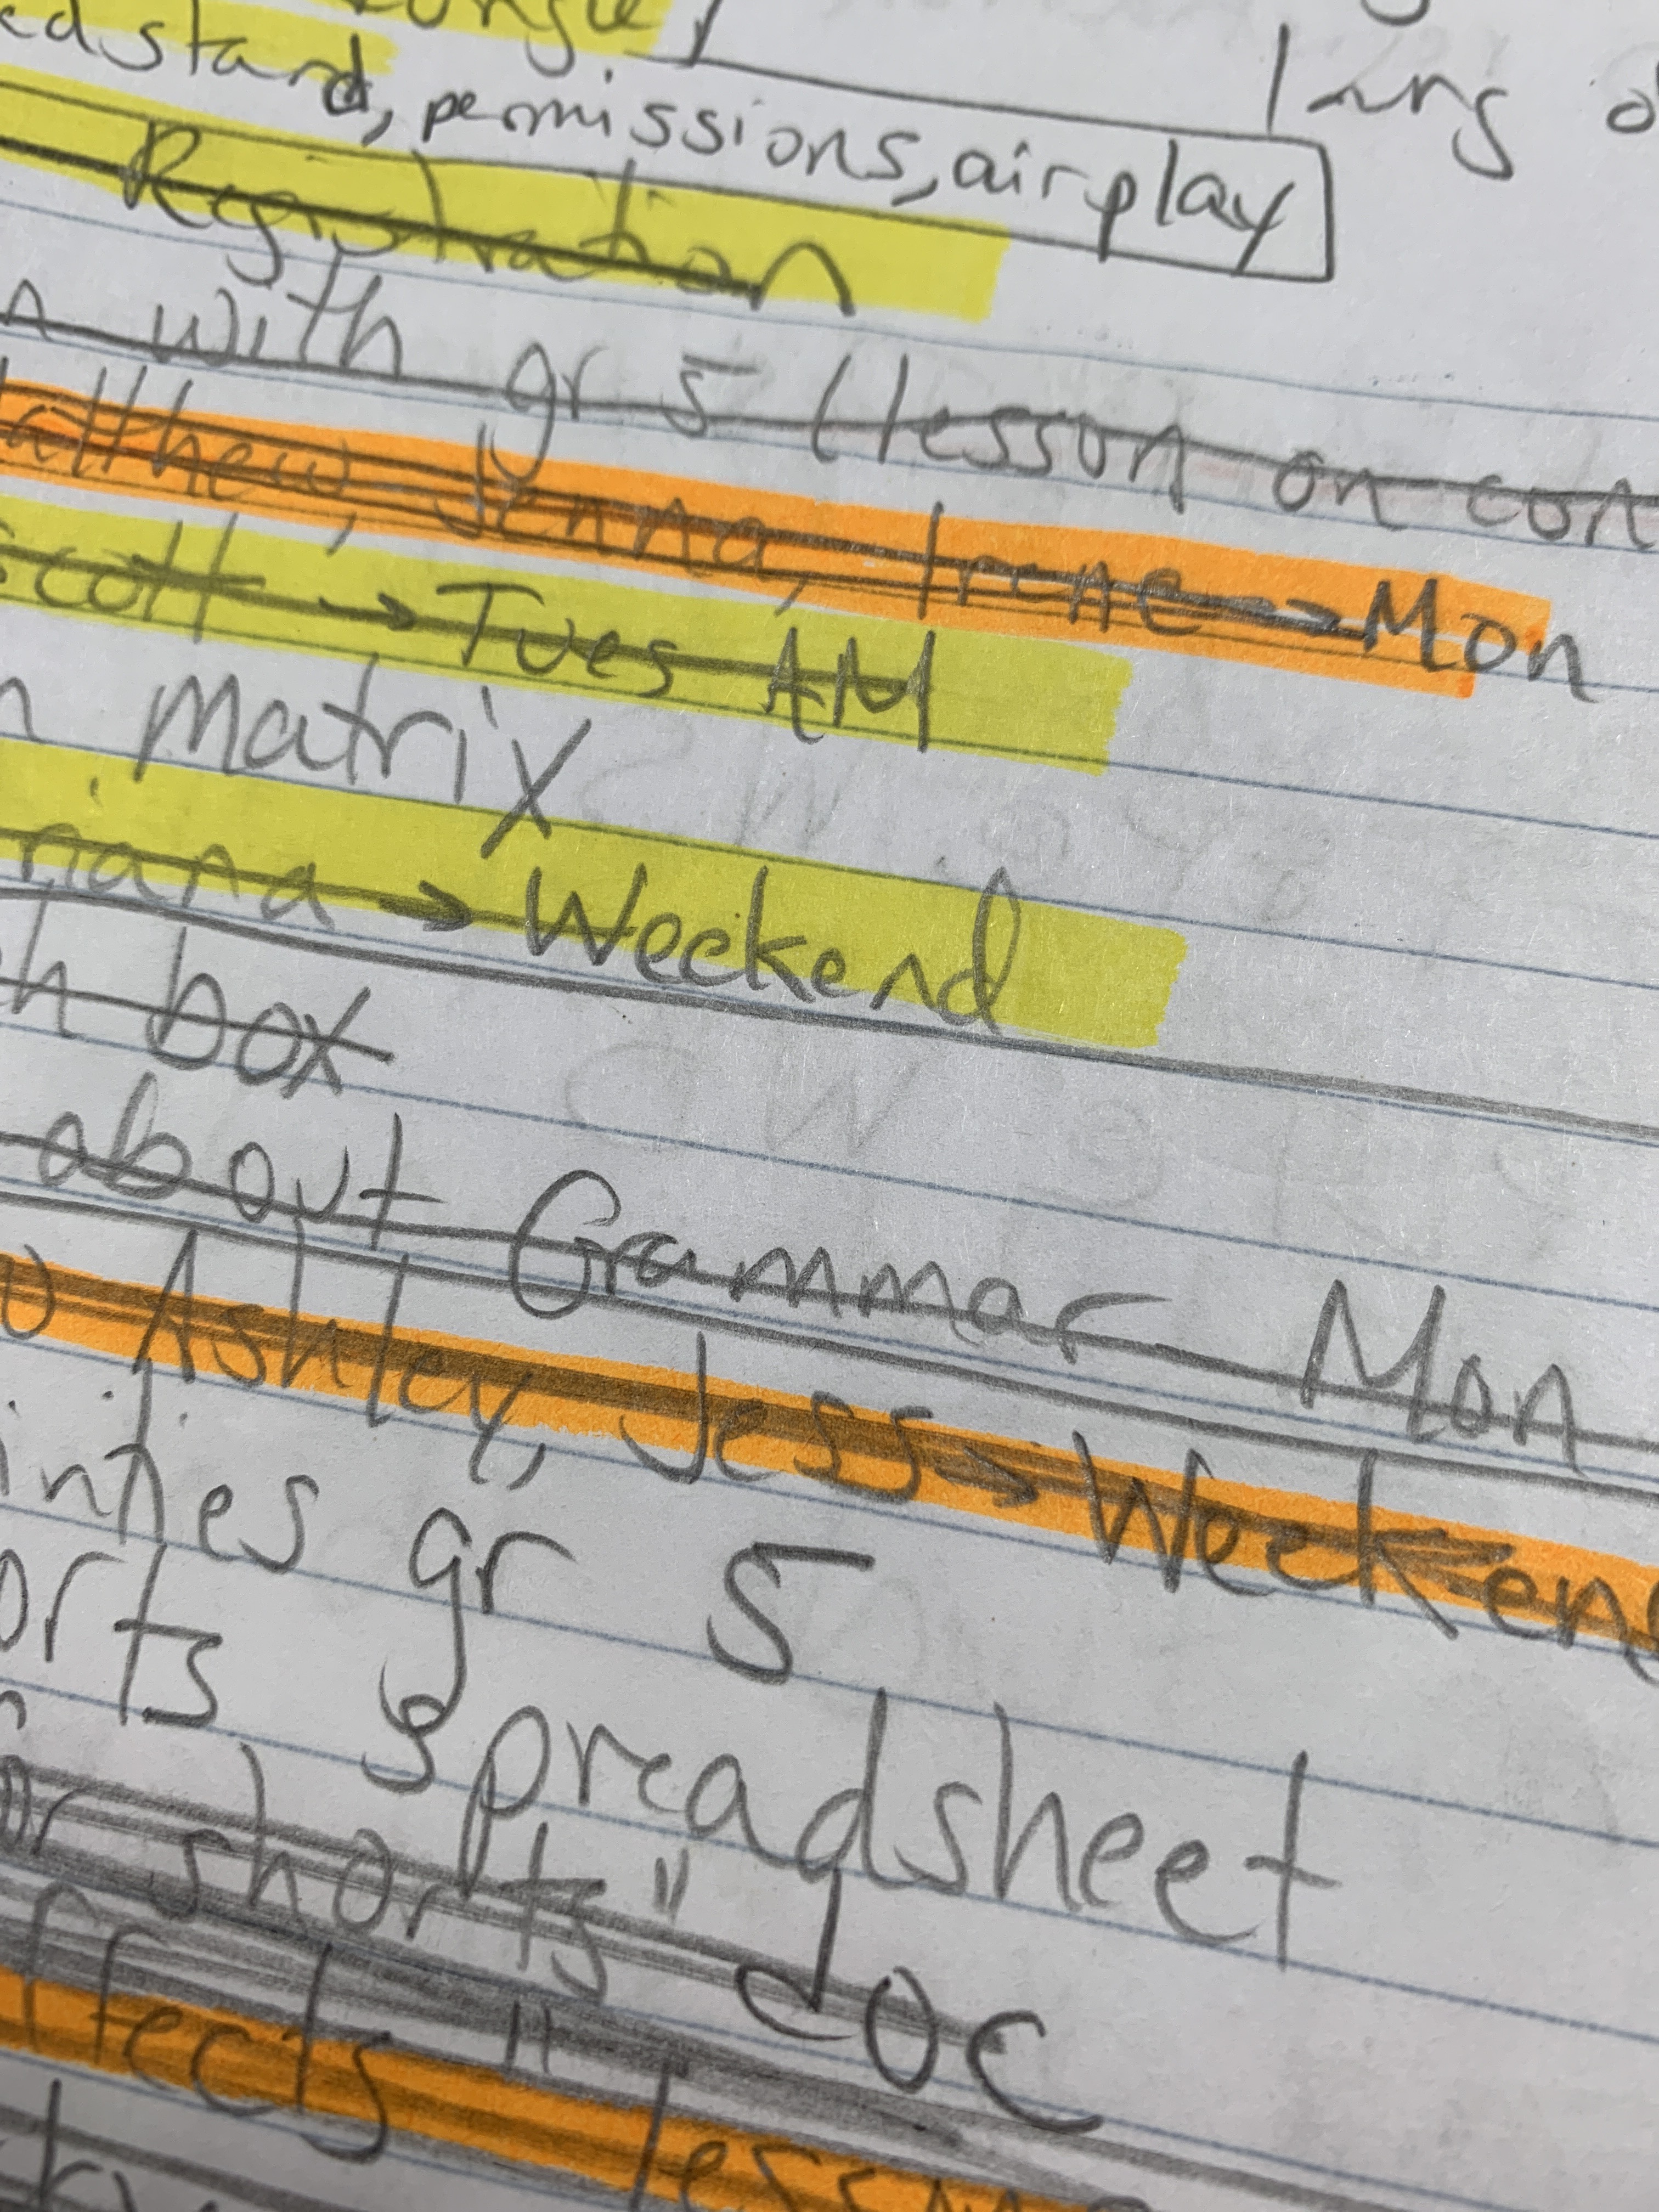 lang
ed stand, permissions, airplay
Registration
with gr 5 (lesson on con
atthew, Jenna, Irene → Mon
scott → Tues AM
n Matrix
riana → Weekend
h box
about Grammar Mon
Ashley, Jess → Weeken
gr 5
orts spreadsheet
or shorts" doc
ffects" less